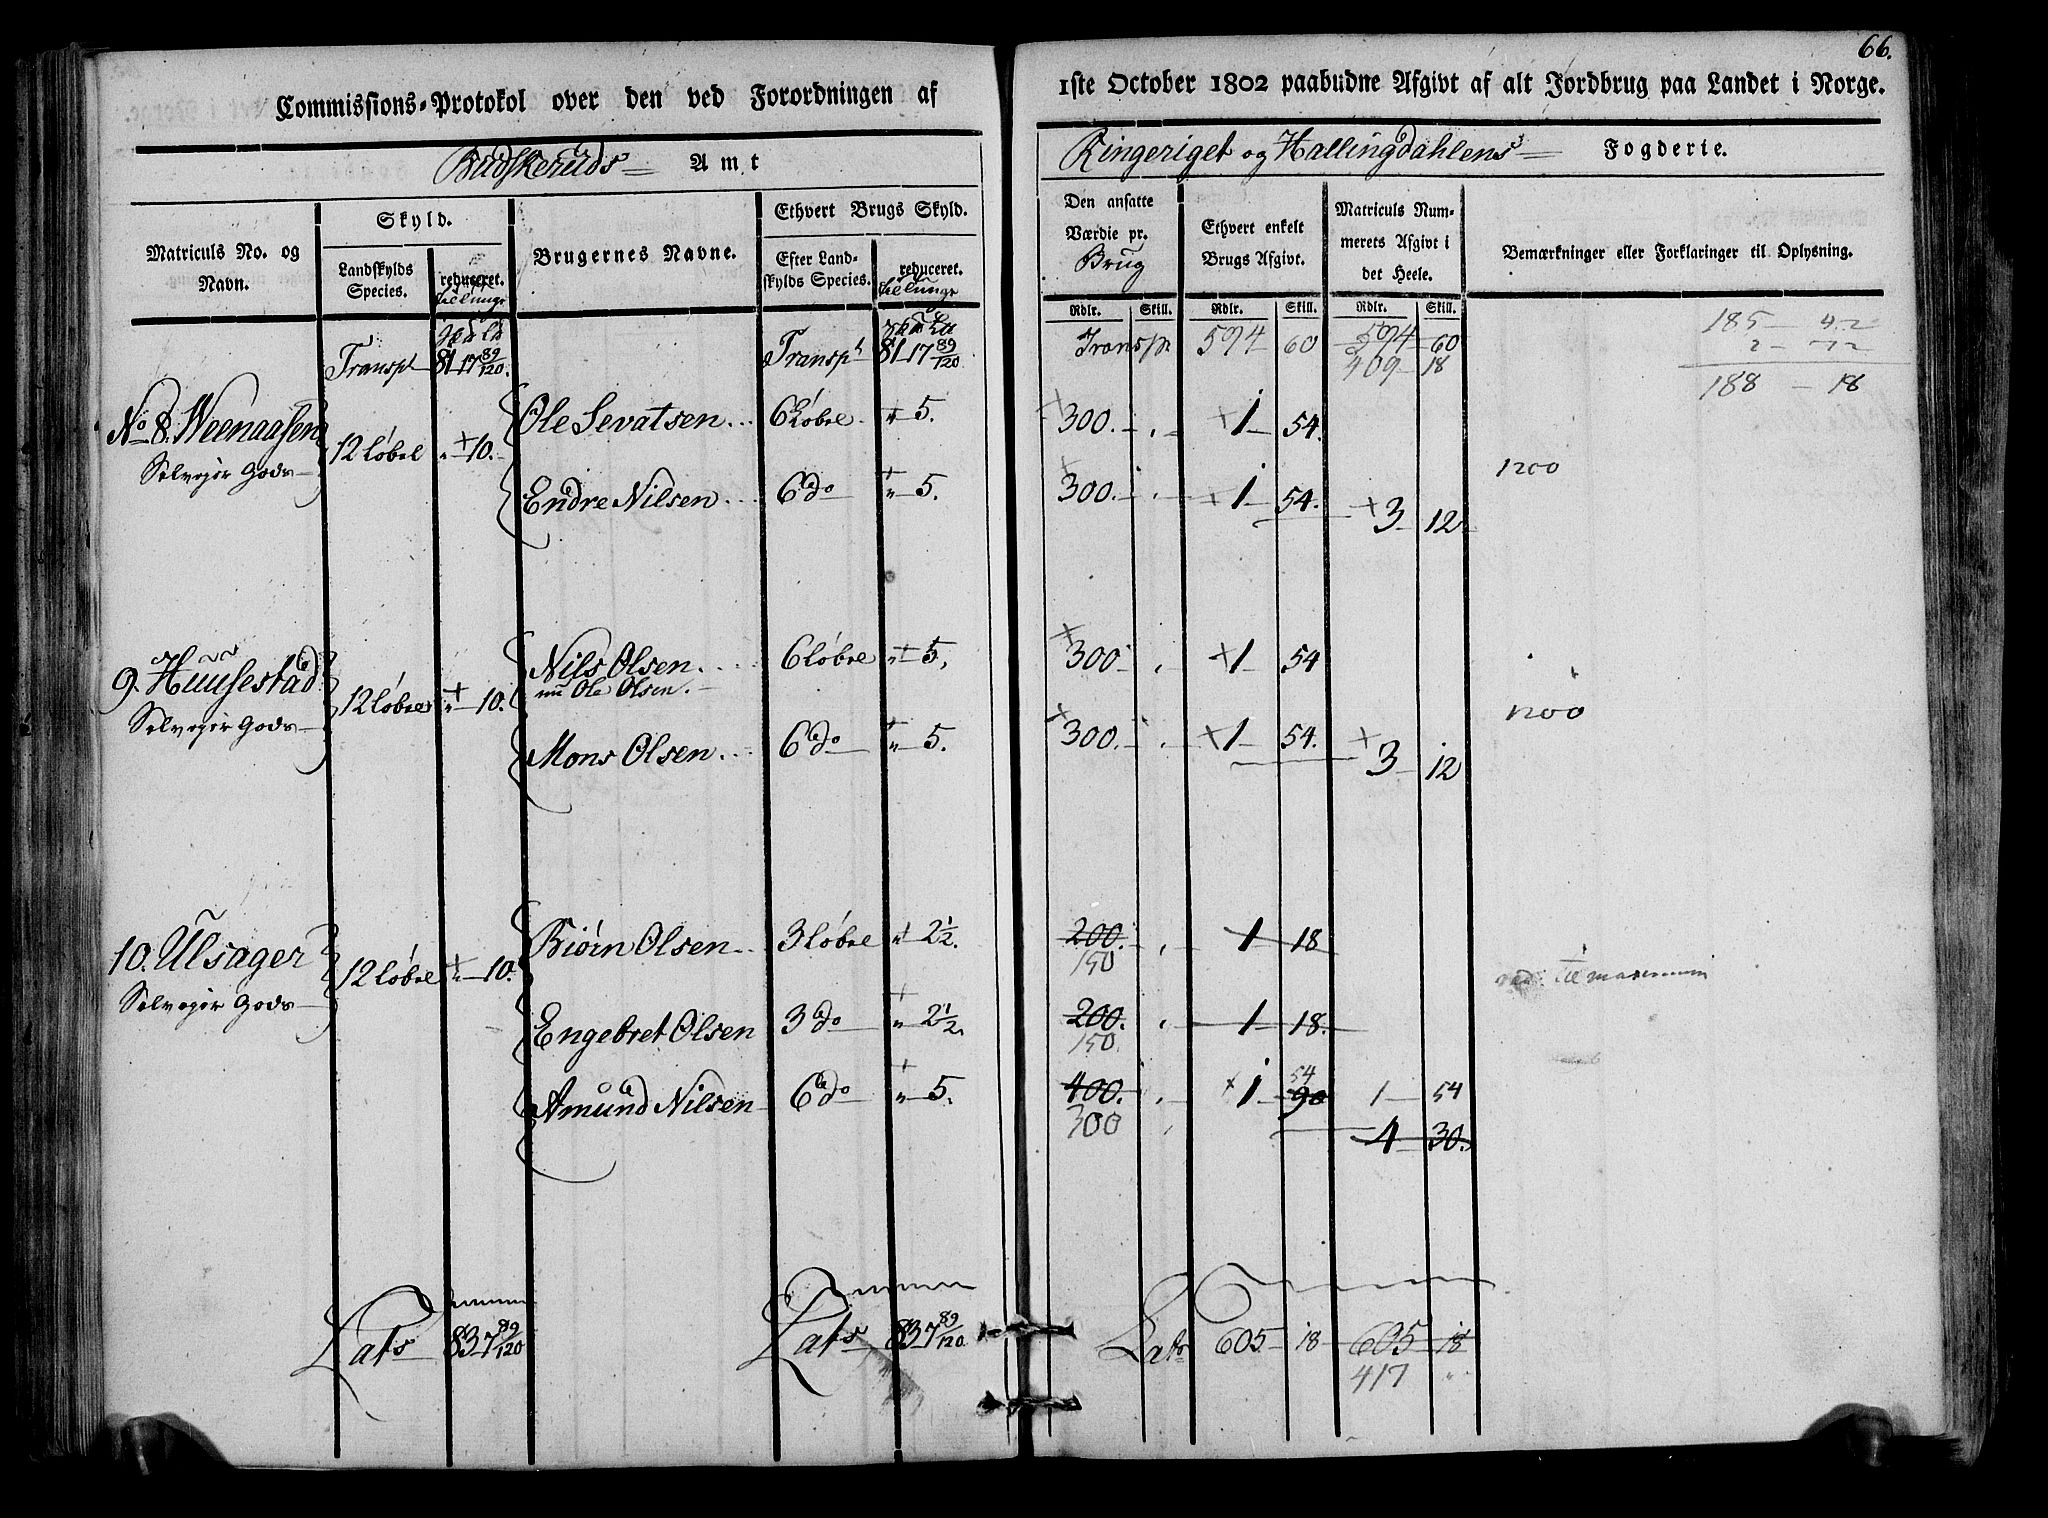 66.
Commissions-Protokol over den ved Forordningen af
1ste October 1802 paabudne Afgivt af alt Jordbrug paa Landet i Norge.
Budskeruds Amt
Ringeriget og Hallingdahlens Fogderie.
Matriculs No. og Navn.
Skyld.
Landskylds Species.
reduceret.
Brugernes Navne.
Ethvert Brugs Skyld.
Efter Landskylds Species.
reduceret.
Den ansatte Værdie pr. Brug
Ethvert enkelt Brugs Afgivt.
Matriculs Nummerets Afgivt i det Heele.
Bemærkninger eller Forklaringer til Oplysning.
Rdlr. Skill. Rdlr. Skill. Rdlr. Skill.
Transpt 81 17 89/120. Transpt 81 17 89/120 Transp 594 60 594 60
409 18
185 42
188 18
No 8. Weenaasen 12 Løbel " 10. Ole Sevatsen 6 Løbel " 5. 300. 1 54.
Selvejer Gods Endre Nilsen 6 do " 5. 300. 1 54. 3 12 1200
9. Huusestad 12 Løbel " 10. Nils Olsen. 6 Løbel " 5. 300 1 54
nu Ole Olsen.
Selvejer Gods Mons Olsen 6 do " 5. 300. 1 54. 3 12 1200
10. Ulsager 12 Løbel " 10. Biørn Olsen 3 Løbel " 2½. 200. 1 18
150
Selvejer Gods Engebret Olsen 3 do " 2½. 200. 1 18.
150
Amund Nilsen 6 do " 5. 400. 1 90 1 54
54
300 4 30.
Til maximum
Lats 83 7 89/120 Lats 83 7 89/120. Lats 605 18 605 18
417 "